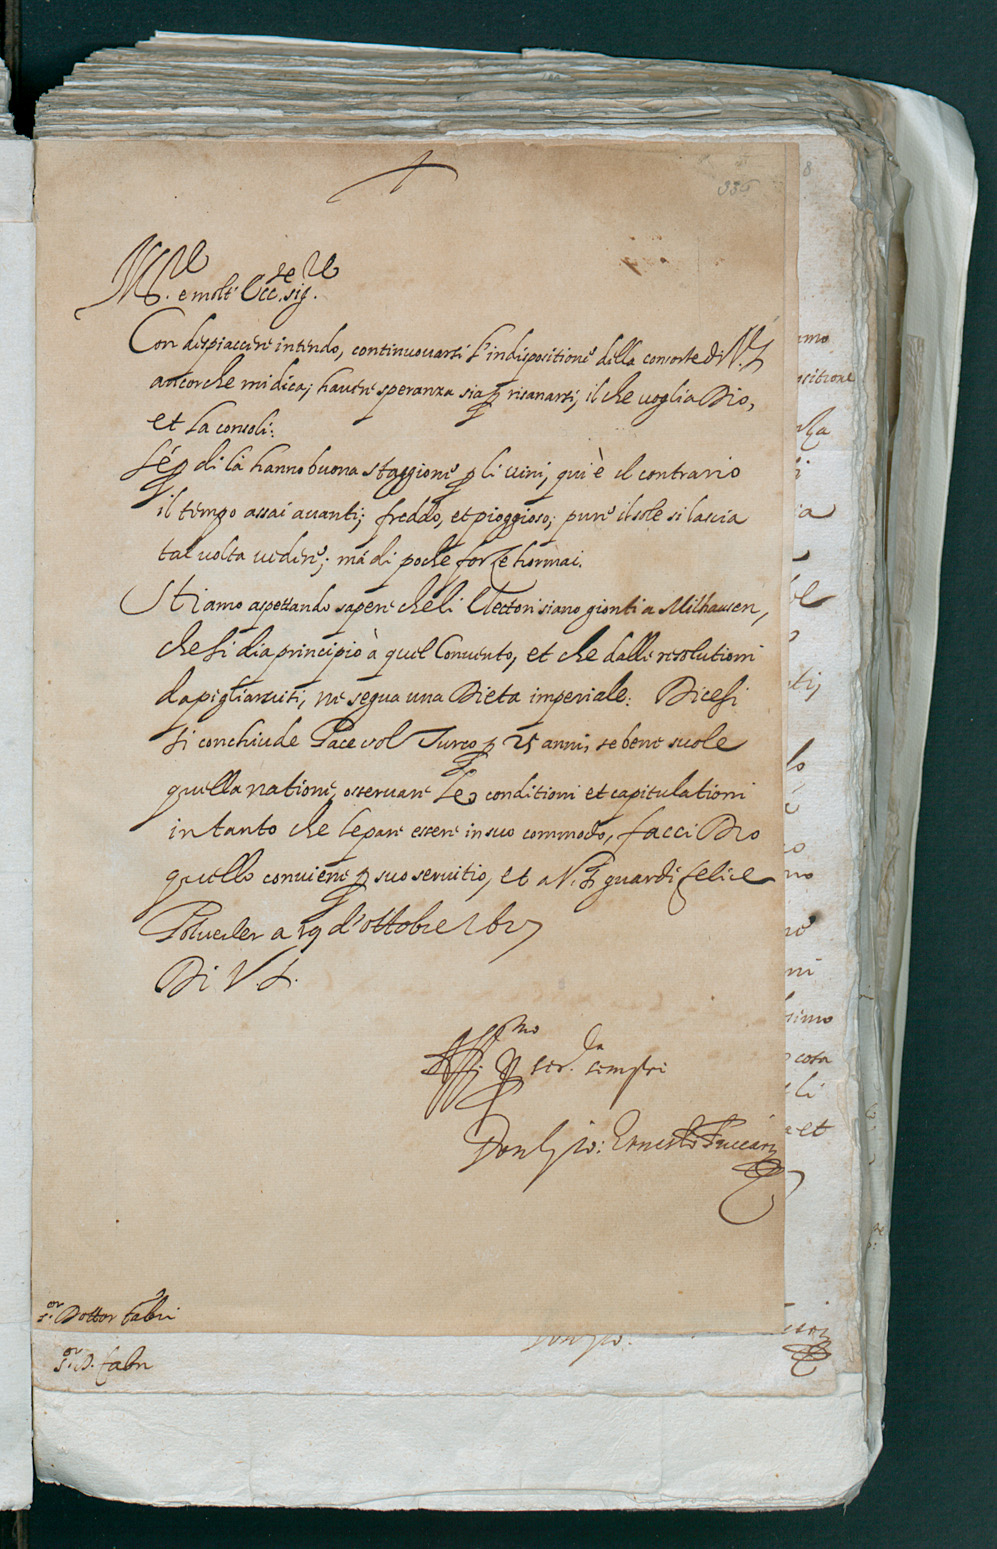 335
8
M.re e molt' Ecc.te sig.re
Con dispiacere intendo, continovarsi l'indispositione della consorte di V.S.
ancorche mi dica, havere speranza sia p risanarsi, il che voglia Dio,
et la consoli.
Se p di là hanno buona staggione p li vini, qui è il contrario
il tempo assai avanti; freddo, et pioggioso; pure il sole si lascia
tal volta vedere; mà di poche forze hormai.
Stiamo aspettando sapere che li Elettori siano gionti a Milhausen,
che si dia principio à quel Convento, et che dalle resolutioni
da pigliarvisi, ne segua una Dieta imperiale. Dicesi
si conchiude Pace col Turco p 25 anni, se bene suole
quella natione, osservare le conditioni et capitulationi
in tanto che le pare essere in suo commodo, facci Dio
quello conviene p suo servitio, et a V.S. guardi felice
Polweiler a 19 d'ottobre 1627
Di V.S.
Aff.mo p ser.la sempre
Don Gio: Ernesto Fuccari
s.or Dottor Fabri
s.or D. Fabri
Don Gio: